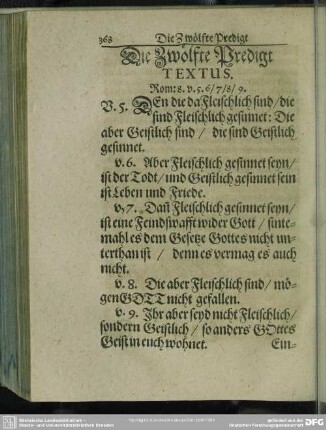 368 Die Zwölfte Predigt
Die Zwölfte Predigt
TEXTUS.
Rom: 8. v. 5. 6/ 7/ 8/ 9.
V. 5. DEn die da Fleischlich sind/ die
sind Fleischlich gesinnet: Die
aber Geistlich sind/ die sind Geistlich
gesinnet.
v. 6. Aber Fleischlich gesinnet seyn/
ist der Todt/ und Geistlich gesinnet sein
ist Leben und Friede.
v. 7. Dañ Fleischlich gesinnet seyn/
ist eine Feindswafft wider Gott/ sinte-
mahl es dem Gesetze Gottes nicht un-
terthan ist/ denn es vermag es auch
nicht.
v. 8. Die aber Fleischlich sind/ mö-
gen GOTT nicht gefallen.
v. 9. Ihr aber seyd nicht Fleischlich/
sondern Geistlich/ so anders GOttes
Geist in euch wohnet. Ein-
DFG